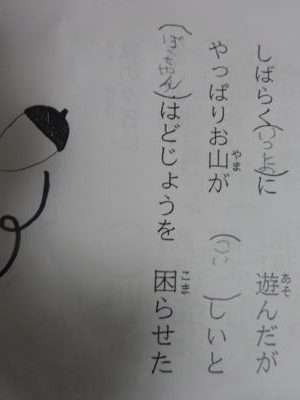 しばらく(いっしょ)に 遊んだが
あそ
やっぱりお山が (こい)しいと
やま
(ぼっちゃん)はどじょうを 困らせた
こま